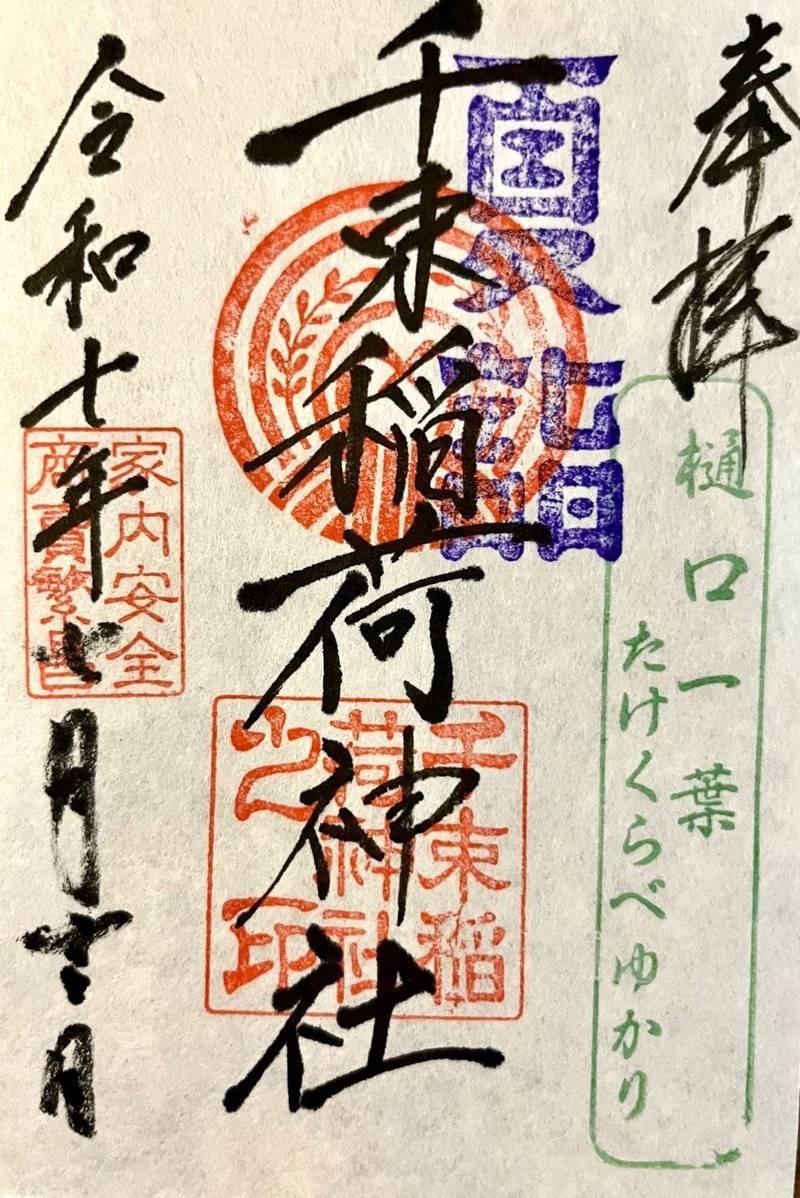 奉拝
樋口一葉
たけくらべゆかり
夏詣
千束稲荷神社
千束稲
荷神社
之印
令和七年七月 日
家内安全
商賣繁昌